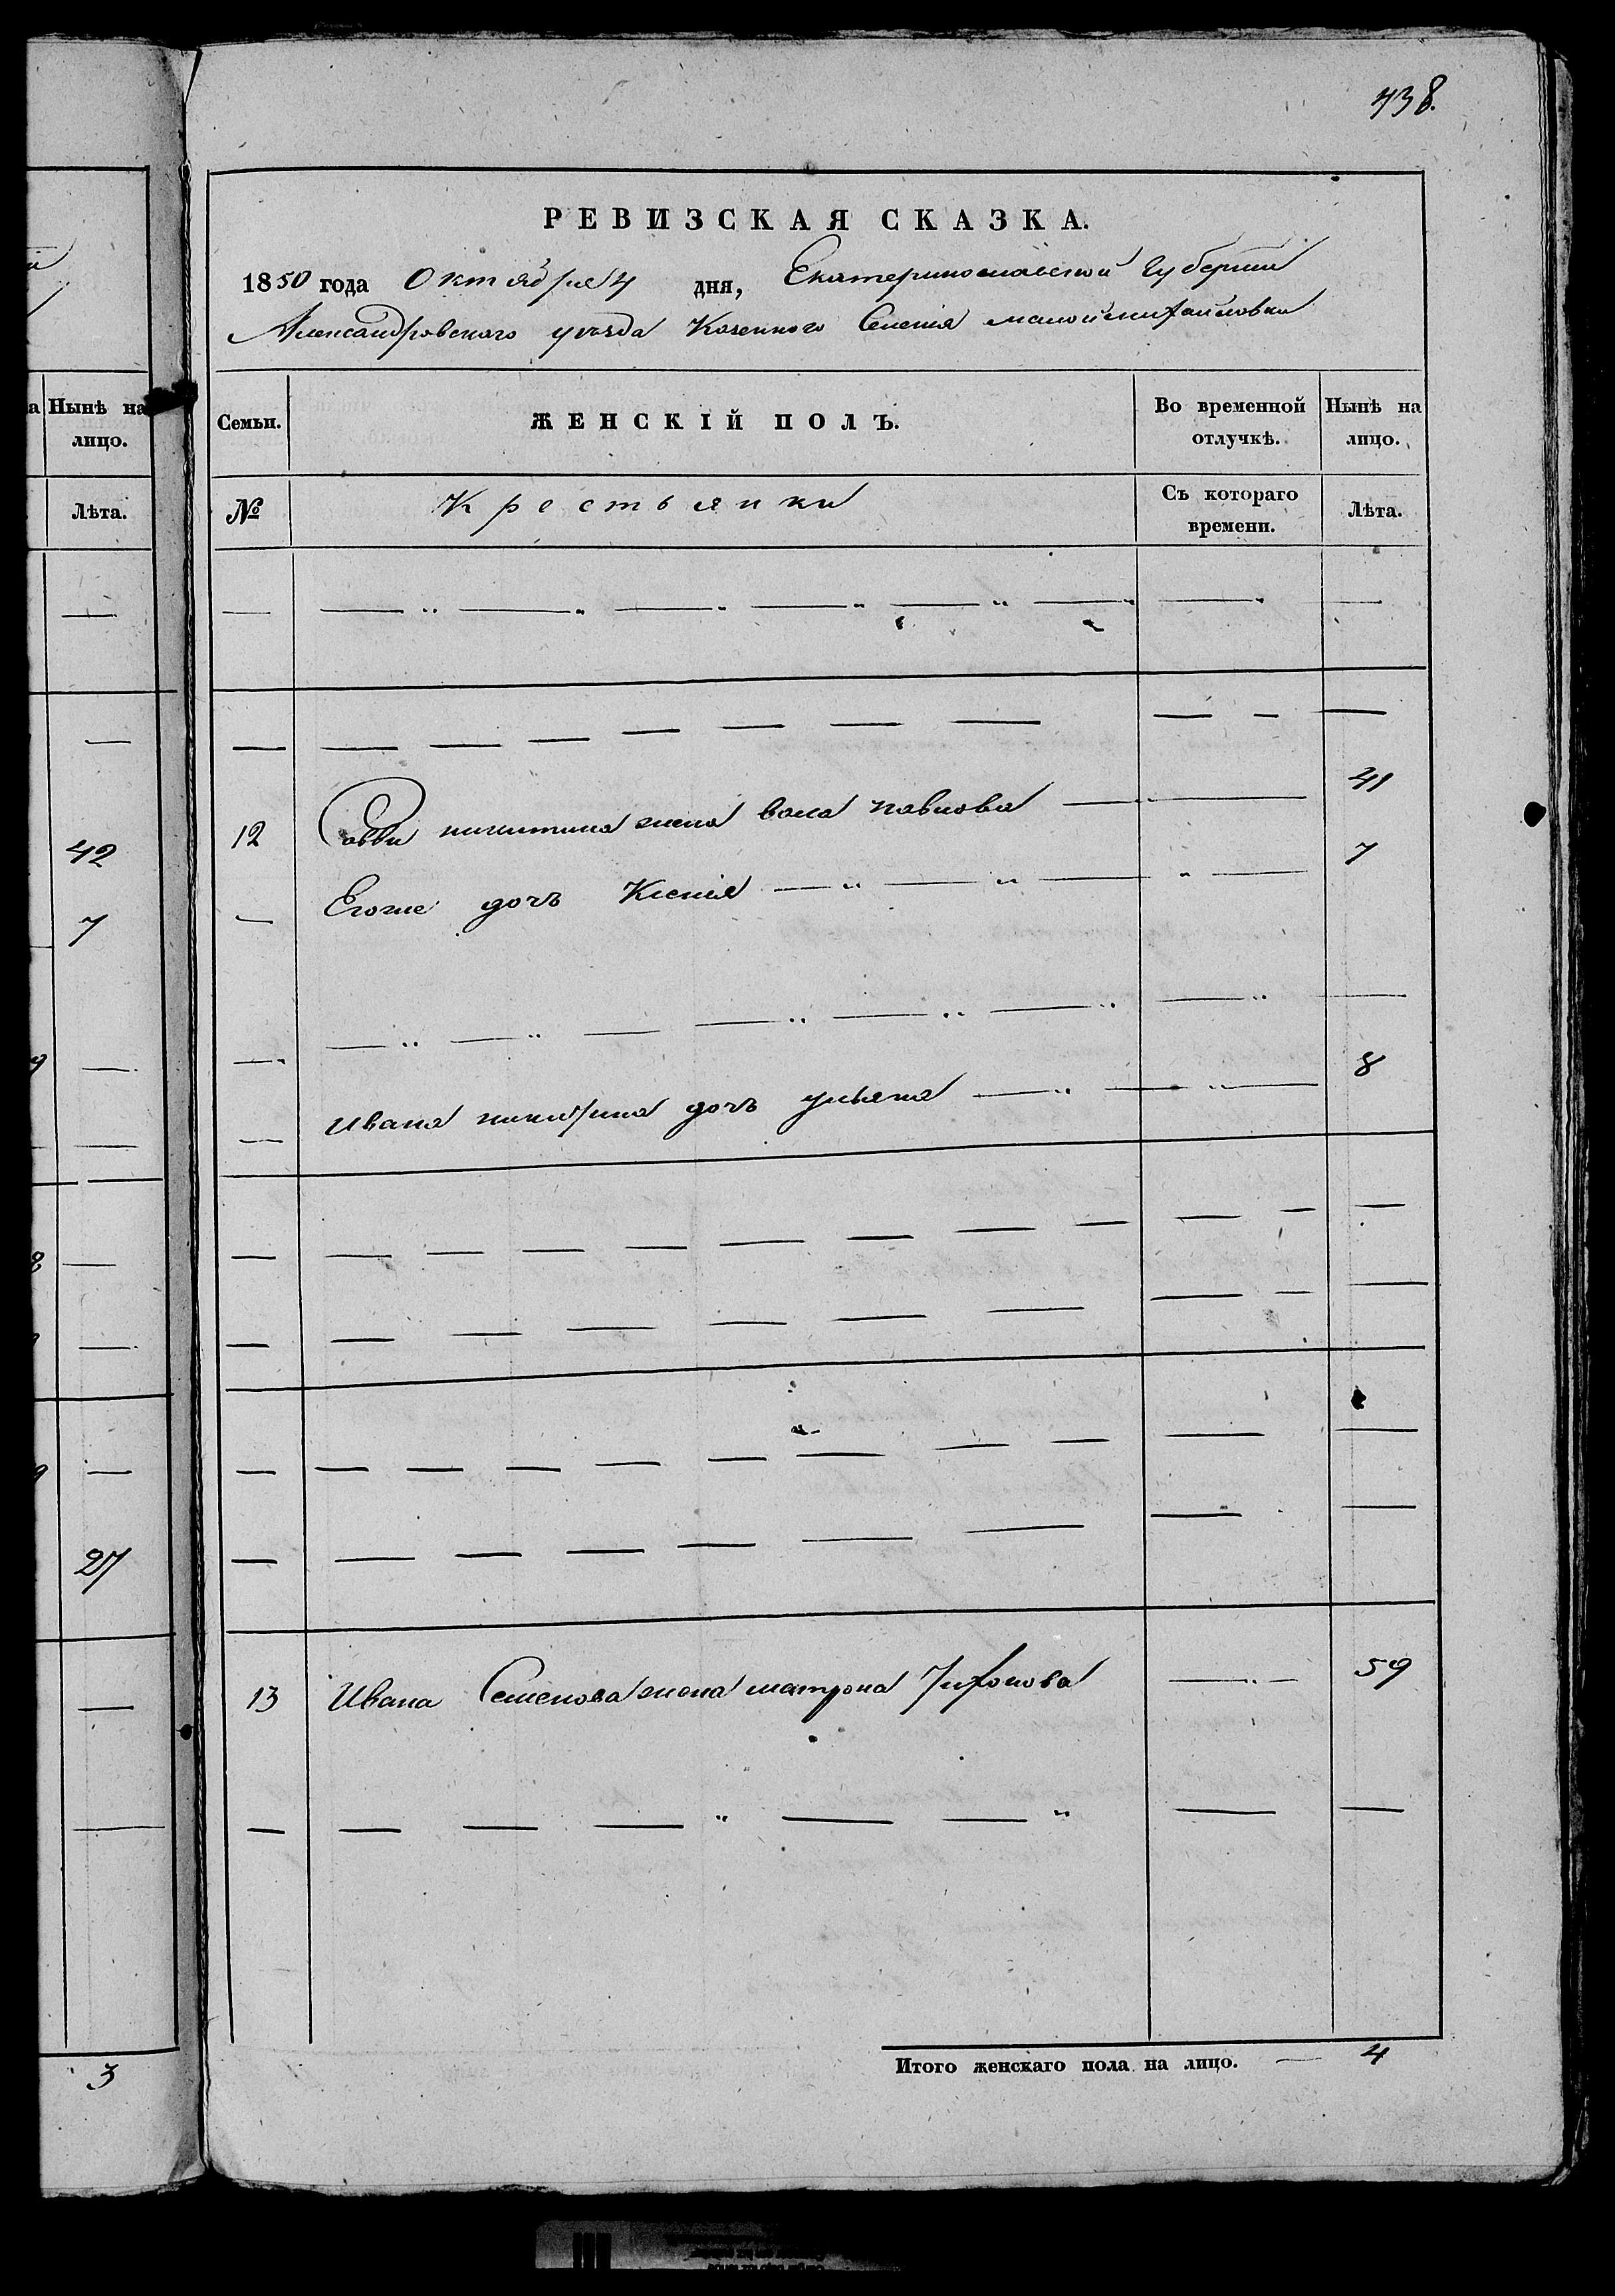 438.
РЕВИЗСКАЯ СКАЗКА.
1850 года Октября 4 дня, Екатеринославской Губернии
Александровского уѣзда Козенного Селенія малоймихайловки
а Нынѣ на лицо.
Лѣта.
Семьи.
ЖЕНСКІЙ ПОЛЪ.
Во временной отлучкѣ.
Нынѣ на лицо.
№
Крестьянки
Съ котораго времени.
Лѣта.
12 Савви никитина жена васа павлова 41
Егоже дочъ Ксенія 7
Ивана никитина дочъ ульяна 8
13 Ивана Семенова жена матрона Тихонова 59
Итого женскаго пола на лицо. 4
42
7
27
3